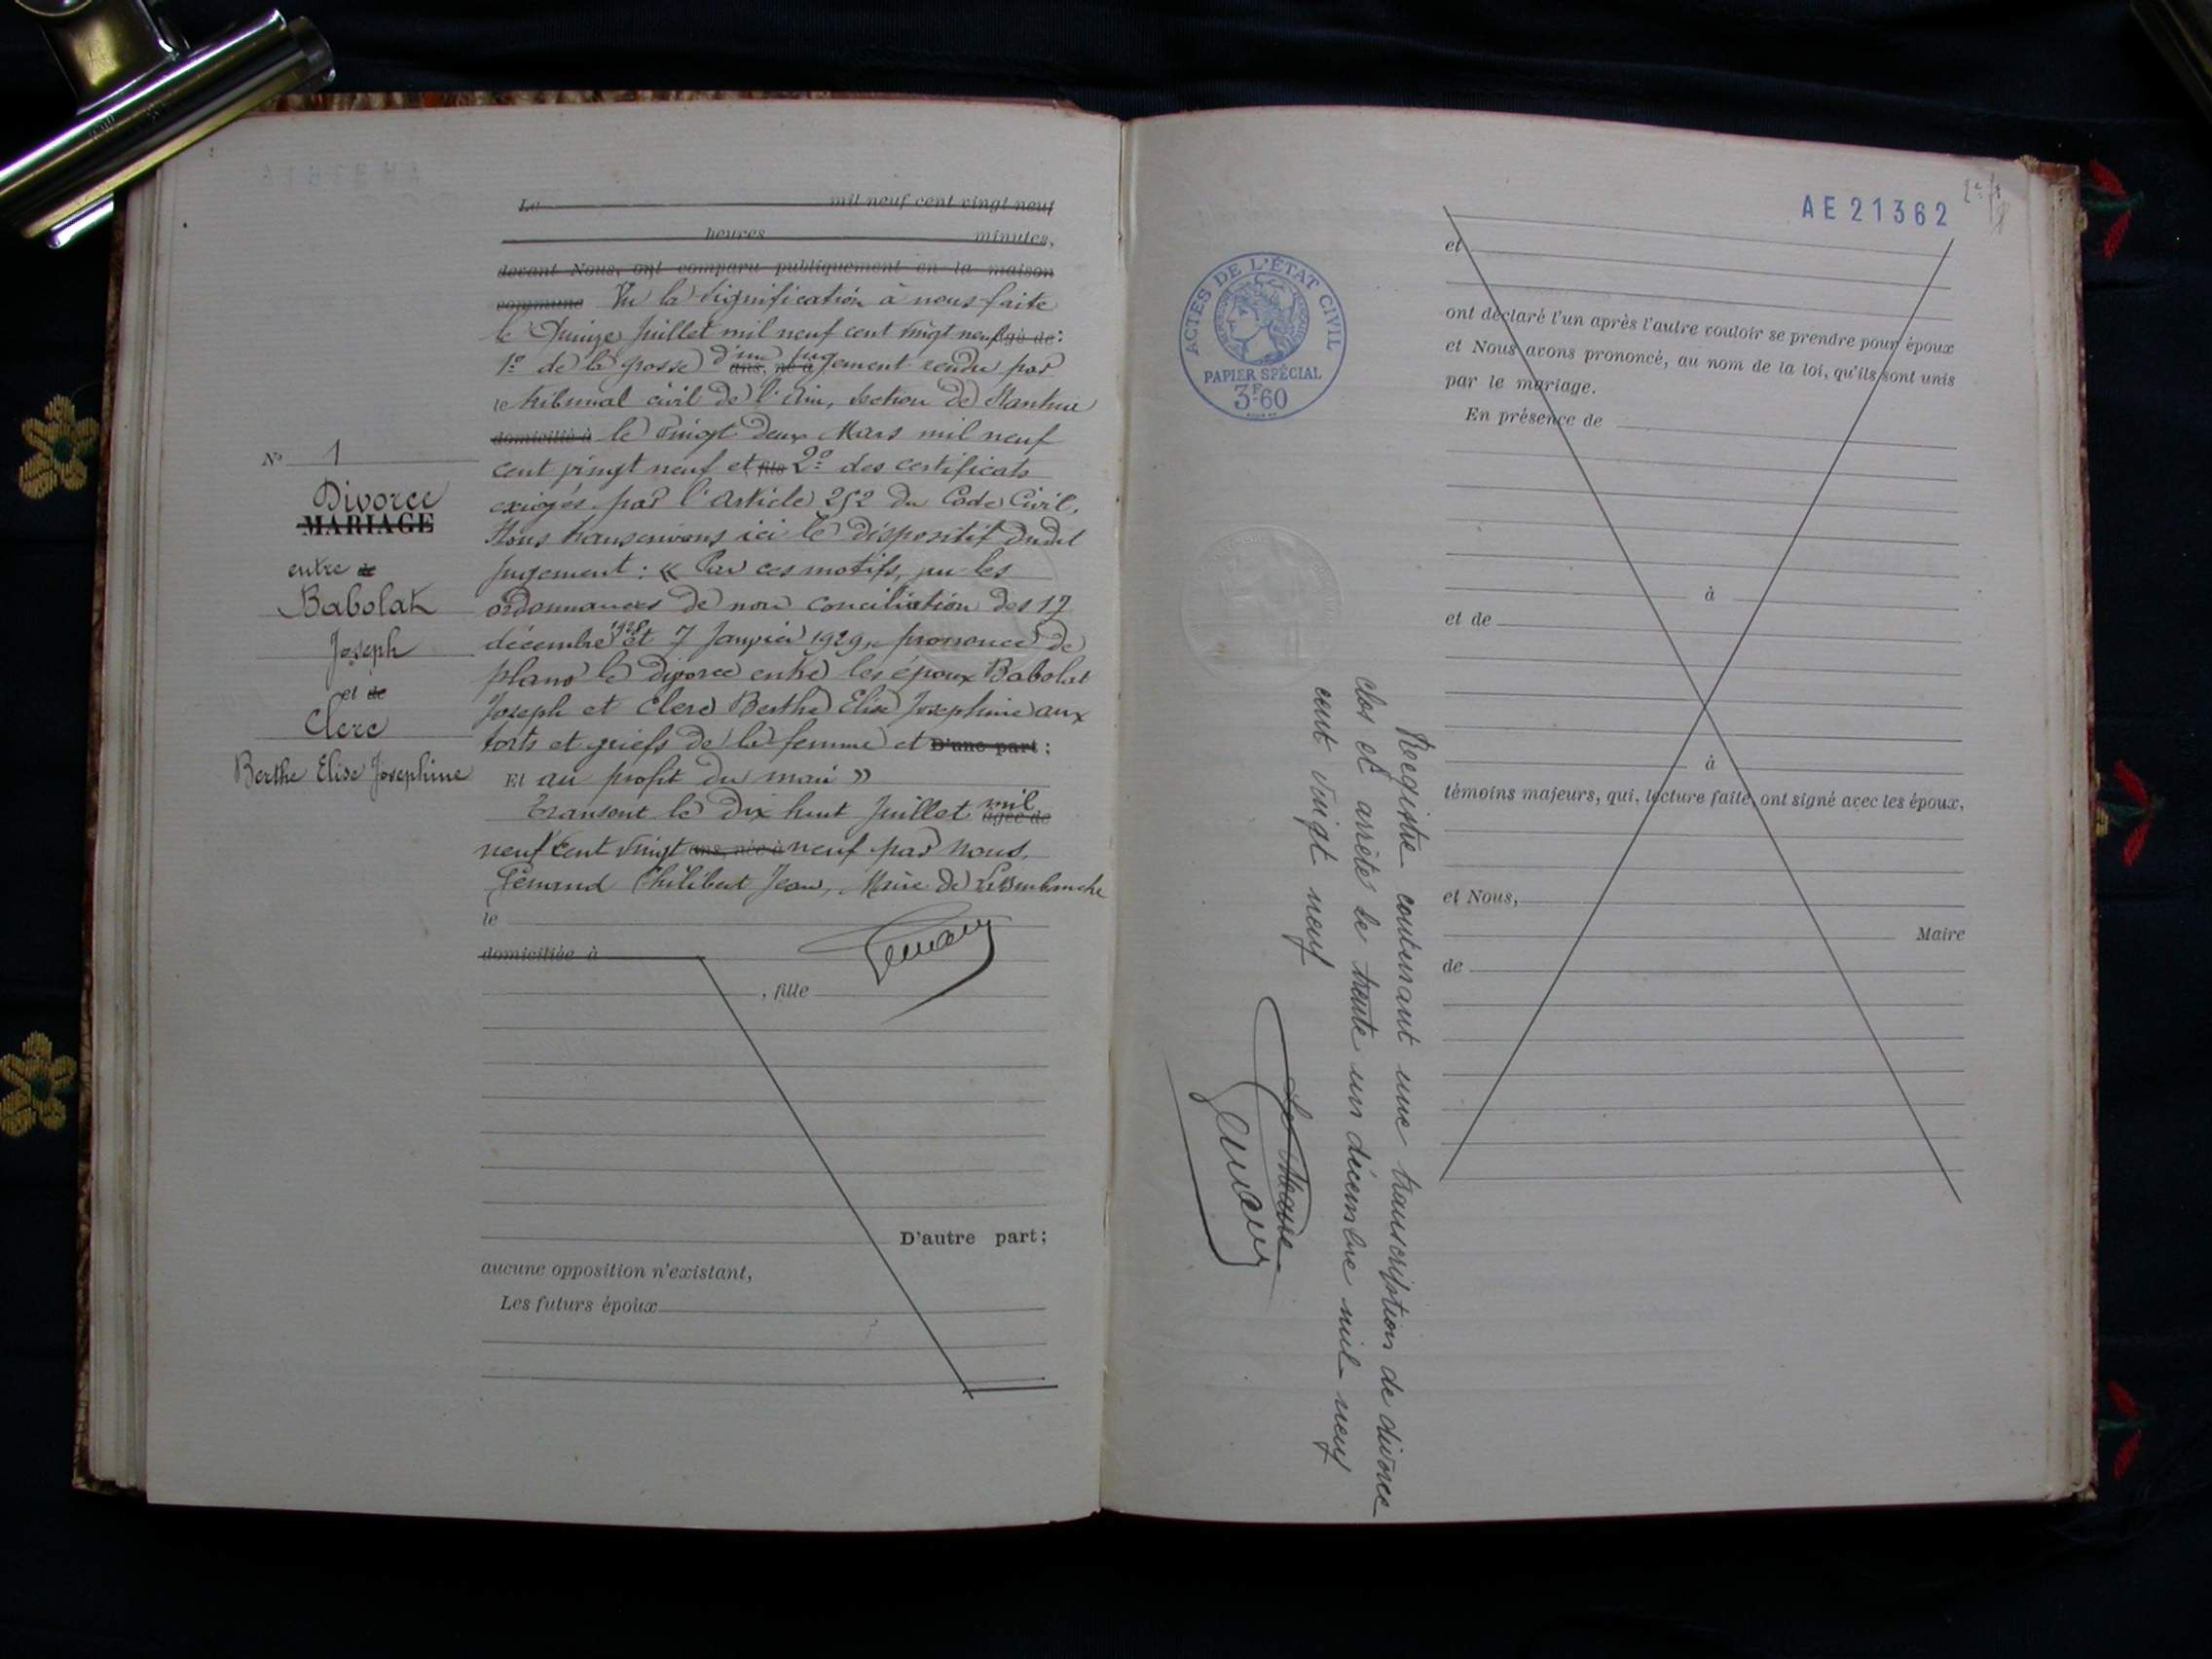 Le mil neuf cent vingt neuf
heures minutes,
devant Nous, ont comparu publiquement en la maison
commune Vu la signification à nous faite
le Quinze Juillet mil neuf cent vingt neuf âgé de :
1º de la grosse d'un jugement rendu par
ans, né à
le tribunal civil de l'Ain, section de Nantua
domicilié à le vingt deux Mars mil neuf
cent vingt neuf et fils 2º des certificats
exigés par l'article 252 du Code Civil.
Nous transcrivons ici le dispositif dudit
Jugement : « Par ces motifs, vu les
ordonnances de non conciliation des 17
décembre 1928 et 7 Janvier 1929, prononce de
plano le divorce entre les époux Babolat
Joseph et Clerc Berthe Elise Josephine aux
torts et griefs de la femme et D'une part :
Et au profit du mari »
Transcrit le Dix huit Juillet mil
âgée de
neuf Cent Vingt ans, née à neuf par Nous,
Philibert Jean, Maire de
le
domiciliée à
, fille
D'autre part ;
aucune opposition n'existant,
Les futurs époux
Nº 1
Divorce
MARIAGE
entre de
Babolat
Joseph
et de
Clerc
Berthe Elise Josephine
AE 21362
ACTES DE L'ÉTAT CIVIL
PAPIER SPÉCIAL
3F60
et
ont déclaré l'un après l'autre vouloir se prendre pour époux
et Nous avons prononcé, au nom de la loi, qu'ils sont unis
par le mariage.
En présence de
à
et de
à
témoins majeurs, qui, lecture faite, ont signé avec les époux,
et Nous,
Maire
de
Registre contenant une transcription de divorce
clos et arrêté le trente un décembre mil neuf
cent vingt neuf
Le Maire